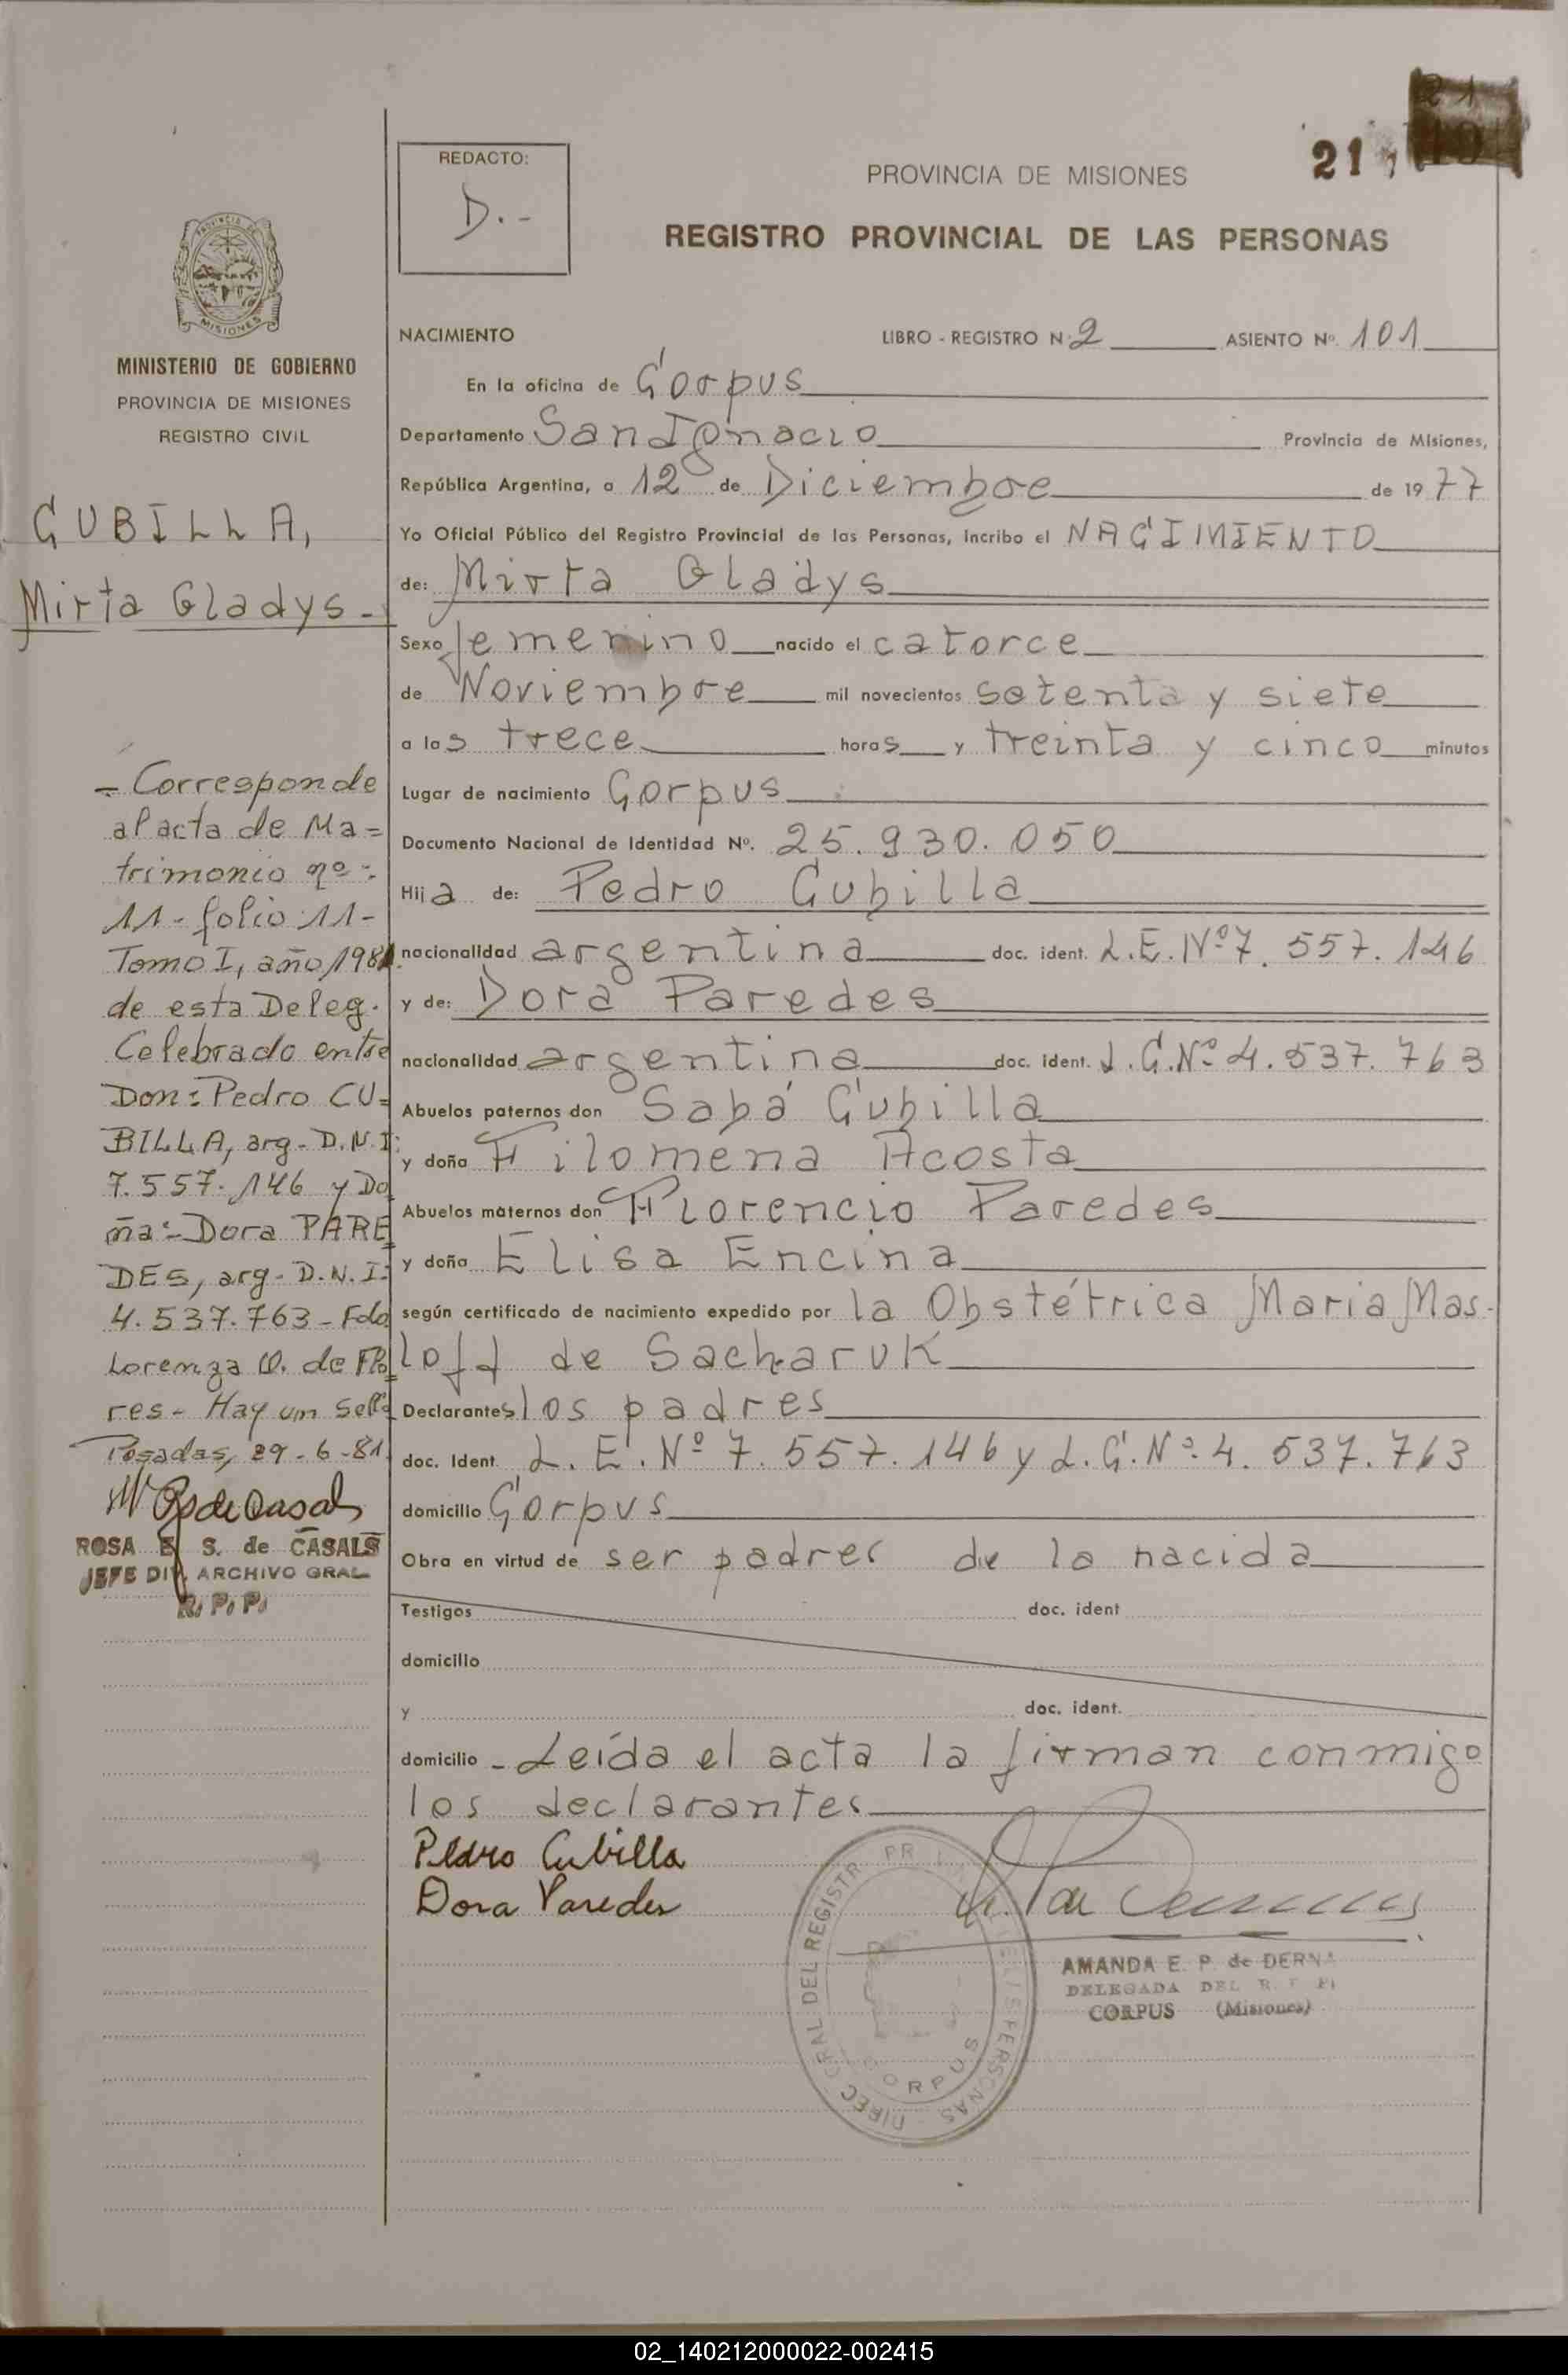 21
21
REDACTO:
D.-
PROVINCIA DE MISIONES
REGISTRO PROVINCIAL DE LAS PERSONAS
PROVINCIA DE
MISIONES
MINISTERIO DE GOBIERNO
PROVINCIA DE MISIONES
REGISTRO CIVIL
CUBILLA,
Mirta Gladys-
- Corresponde
al acta de Ma=
trimonio nº:
11- folio 11-
Tomo I, año 1981.
de esta Deleg.
Celebrado entre
Don: Pedro CU=
BILLA, arg- D.N.I:
7.557.146 y Do
ña:- Dora PARE=
DES, arg- D.N.I:
4.537.763- Fdo
Lorenza O. de Flo=
res- Hay un sello
Posadas, 29-6-81.
ROSA E. S. de CASALS
JEFE DIV. ARCHIVO GRAL
R. P. P.
NACIMIENTO LIBRO - REGISTRO N. 2 ASIENTO Nº. 101
En la oficina de Corpus
Departamento San Ignacio Provincia de Misiones,
República Argentina, a 12 de Diciembre de 1977
Yo Oficial Público del Registro Provincial de las Personas, incribo el NACIMIENTO
de: Mirta Gladys
Sexo femenino nacido el catorce
de Noviembre mil novecientos setenta y siete
a las trece horas y treinta y cinco minutos
Lugar de nacimiento Corpus
Documento Nacional de Identidad Nº. 25.930.050
Hija de: Pedro Cubilla
nacionalidad argentina doc. ident. L.E. Nº 7.557.146
y de: Dora Paredes
nacionalidad argentina doc. ident. L.C.Nº 4.537.763
Abuelos paternos don Sabá Cubilla
y doña Filomena Acosta
Abuelos maternos don Florencio Paredes
y doña Elisa Encina
según certificado de nacimiento expedido por la Obstétrica Maria Mas-
loff de Sacharuk
Declarantes los padres
doc. Ident. L.E. Nº 7.557.146 y L.C.Nº 4.537.763
domicilio Corpus
Obra en virtud de ser padres de la nacida
Testigos doc. ident
domicilio
y doc. ident.
domicilio - Leída el acta la firman conmigo
los declarantes
Pedro Cubilla
Dora Paredes
DIREC GRAL DEL REGISTR PR DE LAS PERSONAS
CORPUS
AMANDA E. P. de DERNA
DELEGADA DEL R. P. P.
CORPUS (Misiones)
02_140212000022-002415